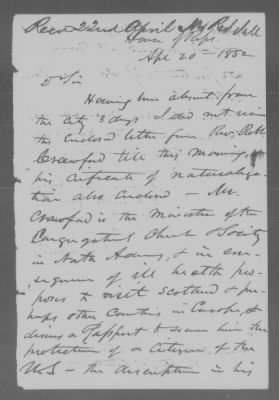 Recd 22nd April
House of Reps
Apl 20th 1852
D Sir
Having been absent from
the City 3 days I did not receive
the enclosed letter from Rev. Robt
Crawford till this morning,
his certificate of naturaliza-
tion also enclosed — Mr.
Crawford is the Minister of the
Congregatnl Church & Society
in North Adams, & in con-
sequence of ill health pro-
poses to visit Scotland & per-
haps other Countries in Europe, &
desires a Passport to secure him the
protection of a Citizen of the
U.S — the description in his